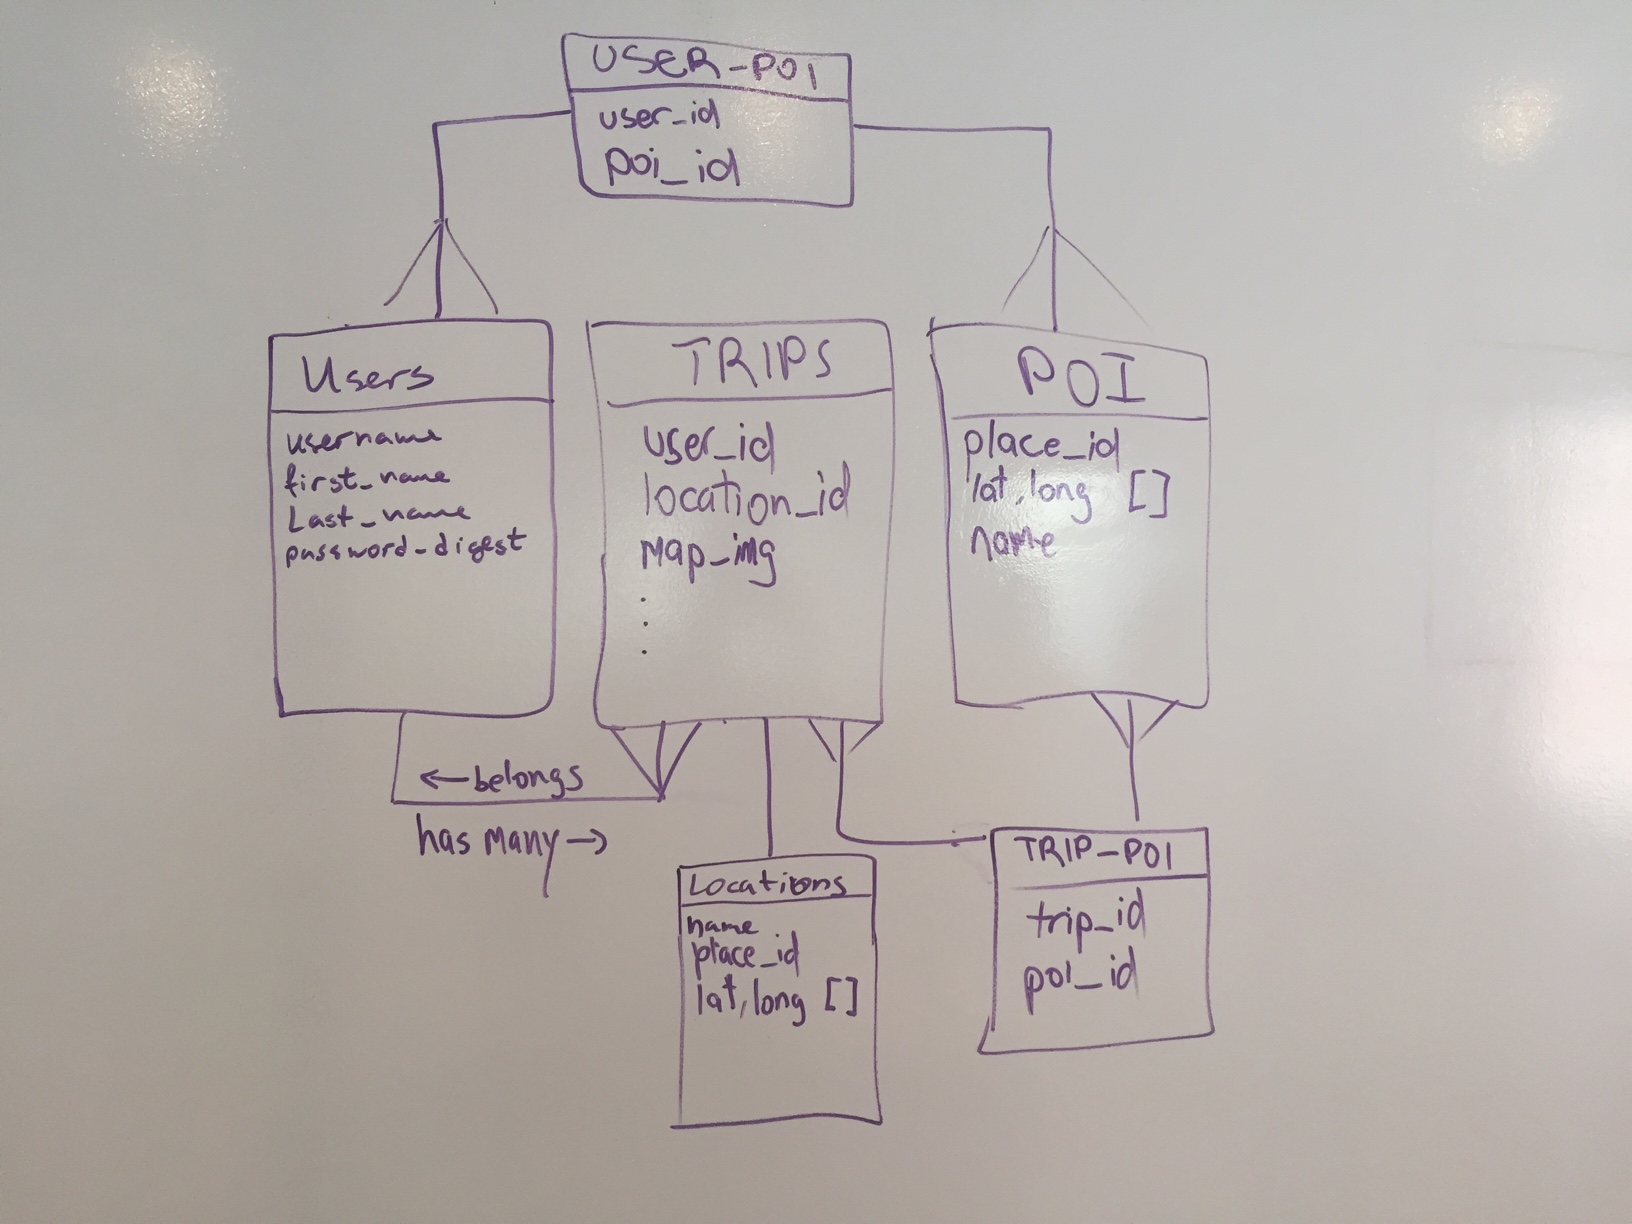 USER-POI
user_id
poi_id
Users
username
first_name
Last_name
password-digest
TRIPS
user_id
location_id
Map_img
.
.
.
POI
place_id
lat, long []
name
←belongs
has many→
Locations
name
place_id
lat, long []
TRIP-POI
trip_id
poi_id